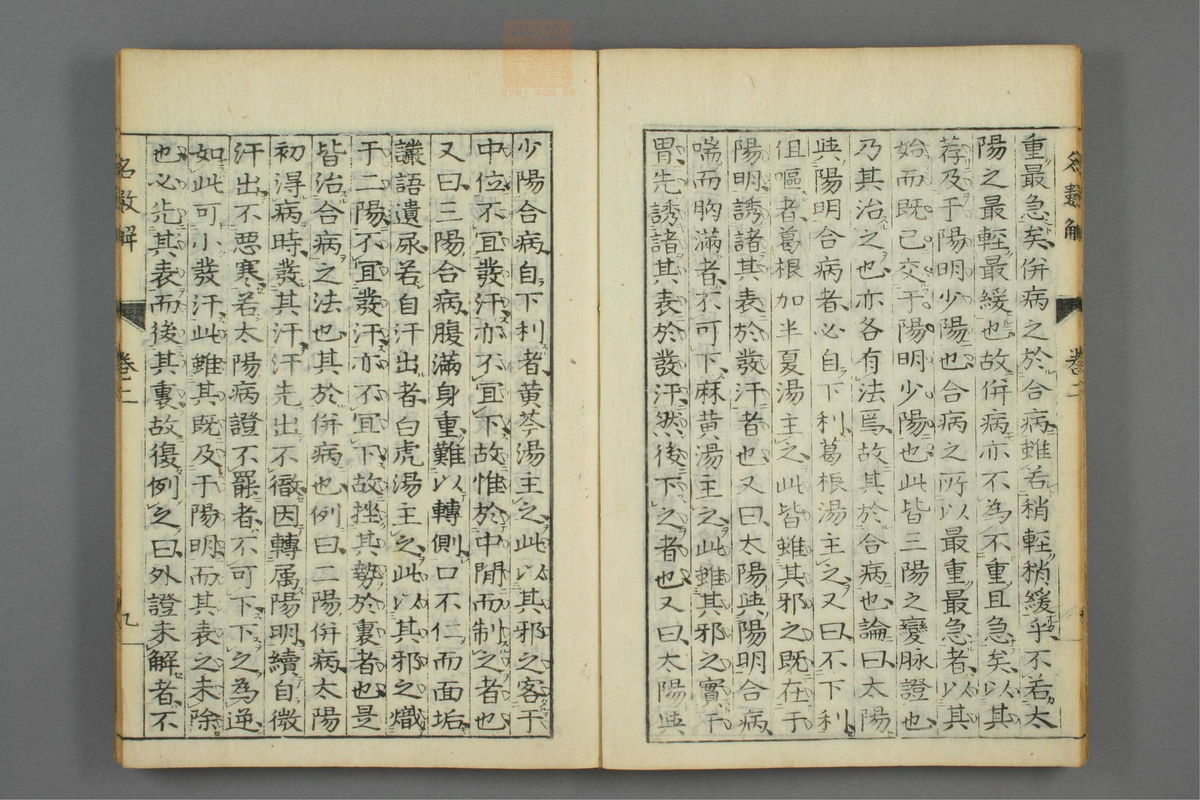 重最急矣併病之於合病雖若稍輕稍緩乎不若太
陽之最輕最緩也故併病亦不為不重且急矣以其
荐及于陽明少陽也合病之所以最重最急者以其
始而既已交于陽明少陽也此皆三陽之變脉證也
乃其治之也亦各有法焉故其於合病也論曰太陽
與陽明合病者必自下利葛根湯主之又曰不下利
但嘔者葛根加半夏湯主之此皆雖其邪之既在于
陽明誘諸其表於發汗者也又曰太陽與陽明合病
喘而胸滿者不可下麻黄湯主之此雖其邪之實于
胃先誘諸其表於發汗然後下之者也又曰太陽與
少陽合病自下利者黄芩湯主之此以其邪之客于
中位不冝發汗亦不冝下故惟於中閒而制之者也
又曰三陽合病腹滿身重難以轉側口不仁而面垢
讝語遺尿若自汗出者白虎湯主之此以其邪之熾
于二陽不冝發汗亦不冝下故挫其勢於裏者也是
皆治合病之法也其於併病也例曰二陽併病太陽
初得病時發其汗汗先出不徹因轉属陽明續自微
汗出不惡寒若太陽病證不罷者不可下下之為逆
如此可小發汗此雖其既及于陽明而其表之未除
也必先其表而後其裏故復例之曰外證未解者不
名數解
卷二
九
名數解
卷二